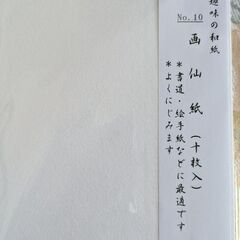 趣味の和紙
No.10
画仙紙(十枚入)
*書道・絵手紙などに最適です
*よくにじみます